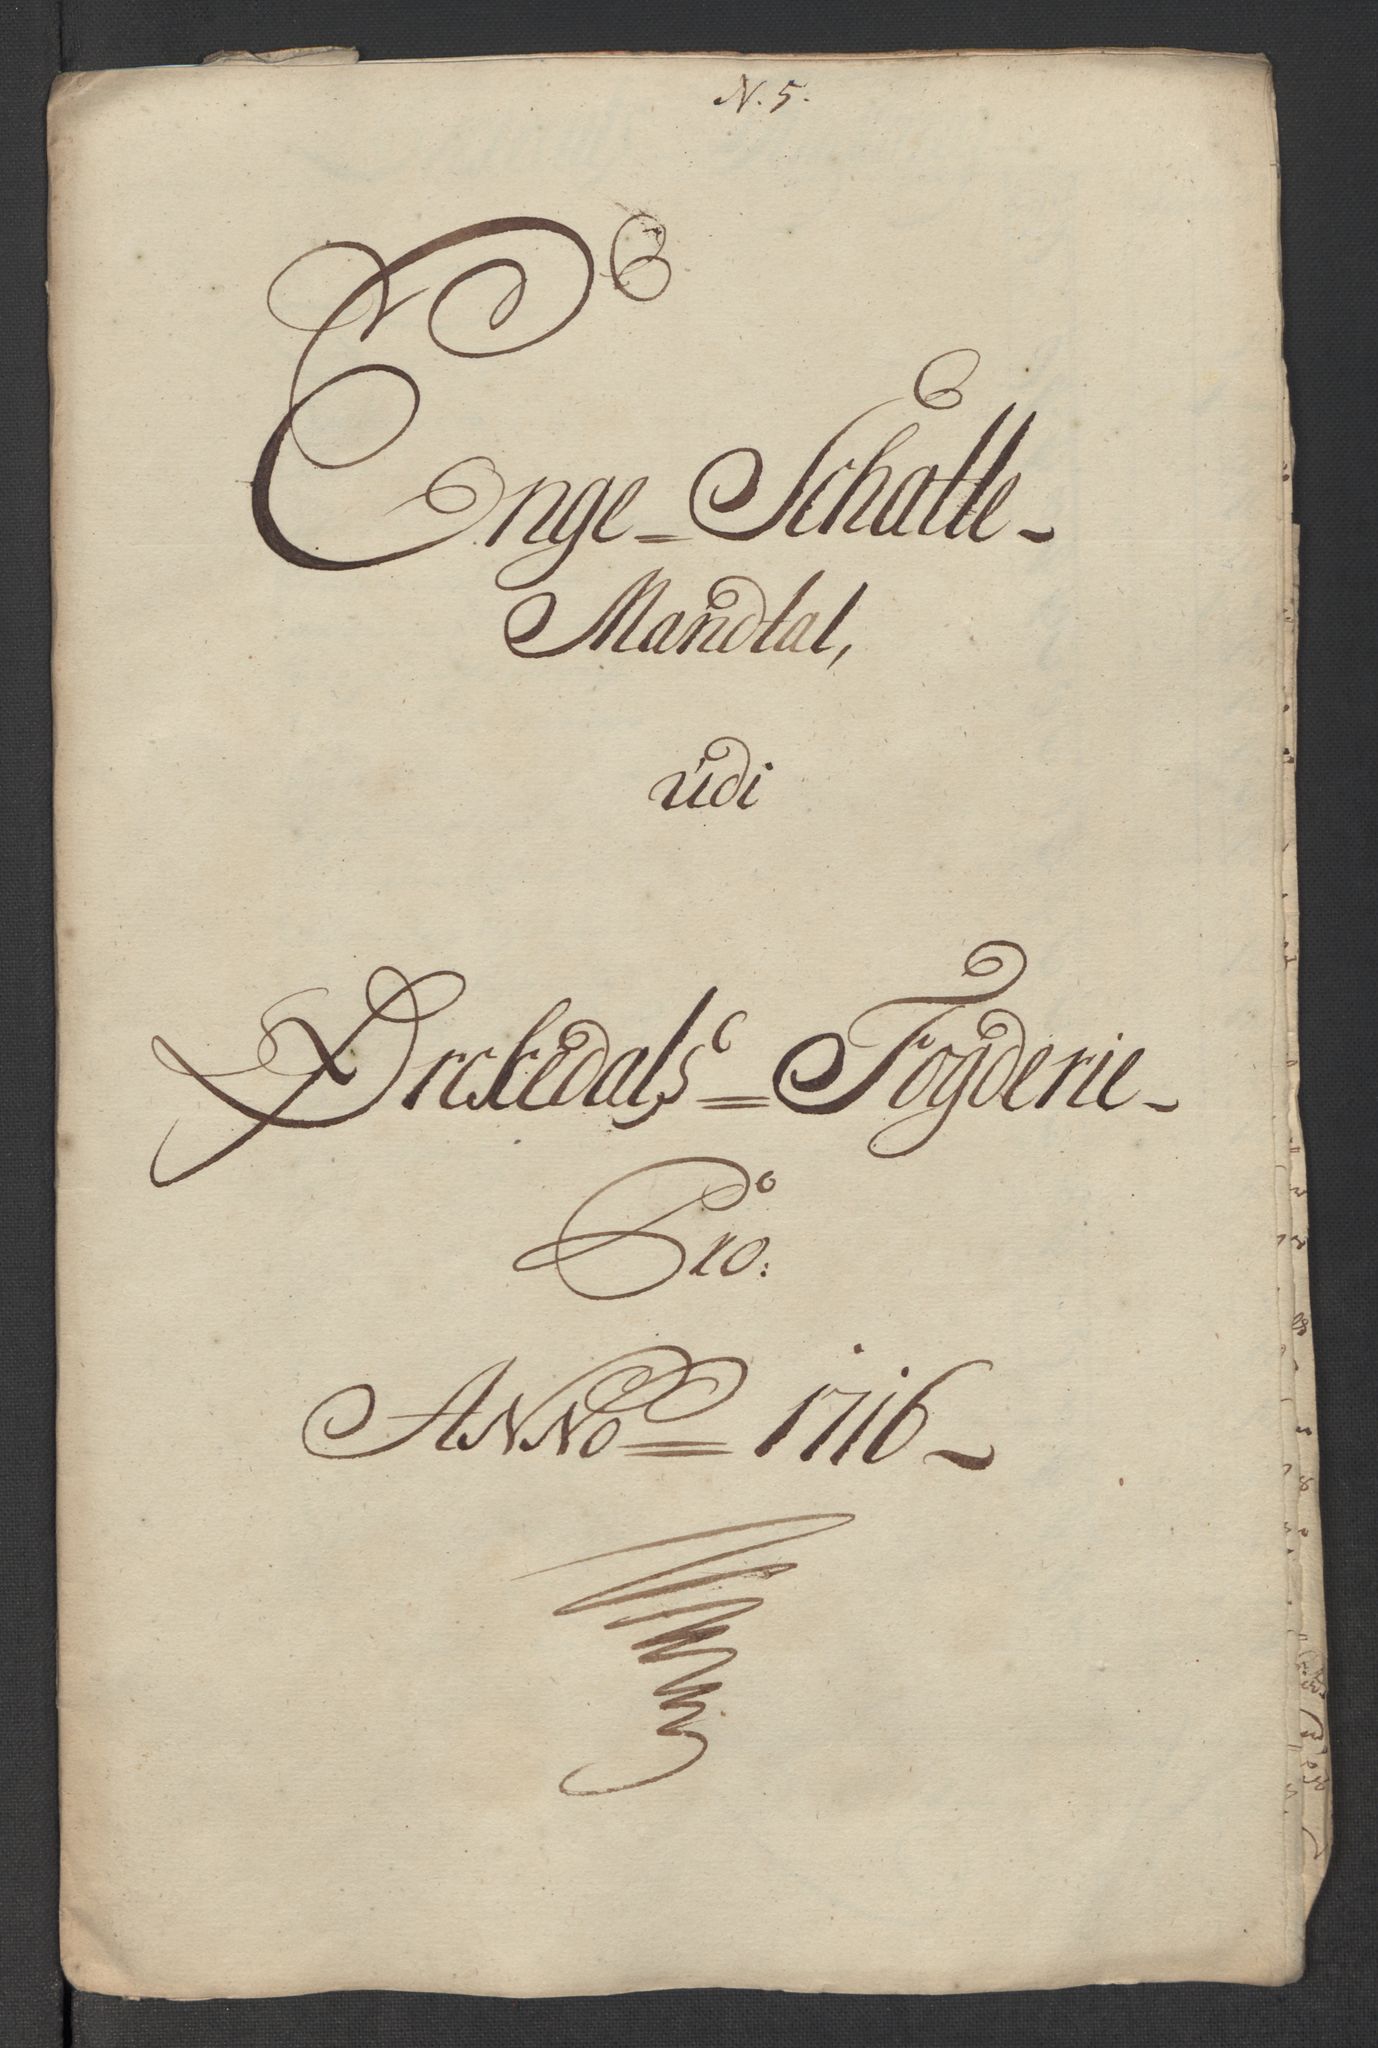 N. 5.
Enge = Schatte -
Mandtal,
udi
Orckedals = Fogderie -
Pro:
ANNO = 1716 -